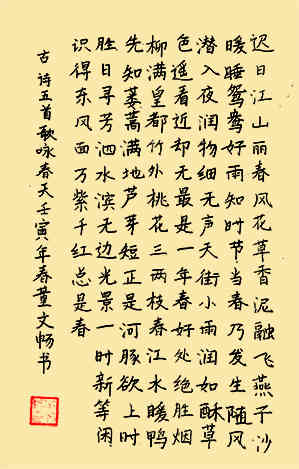 迟日江山丽春风花草香泥融飞燕子沙
暖睡鸳鸯好雨知时节当春乃发生随风
潜入夜润物细无声天街小雨润如酥草
色遥看近却无最是一年春好处绝胜烟
柳满皇都竹外桃花三两枝春江水暖鸭
先知蒌蒿满地芦芽短正是河豚欲上时
胜日寻芳泗水滨无边光景一时新等闲
识得东风面万紫千红总是春
古诗五首歌咏春天壬寅年春董文畅书